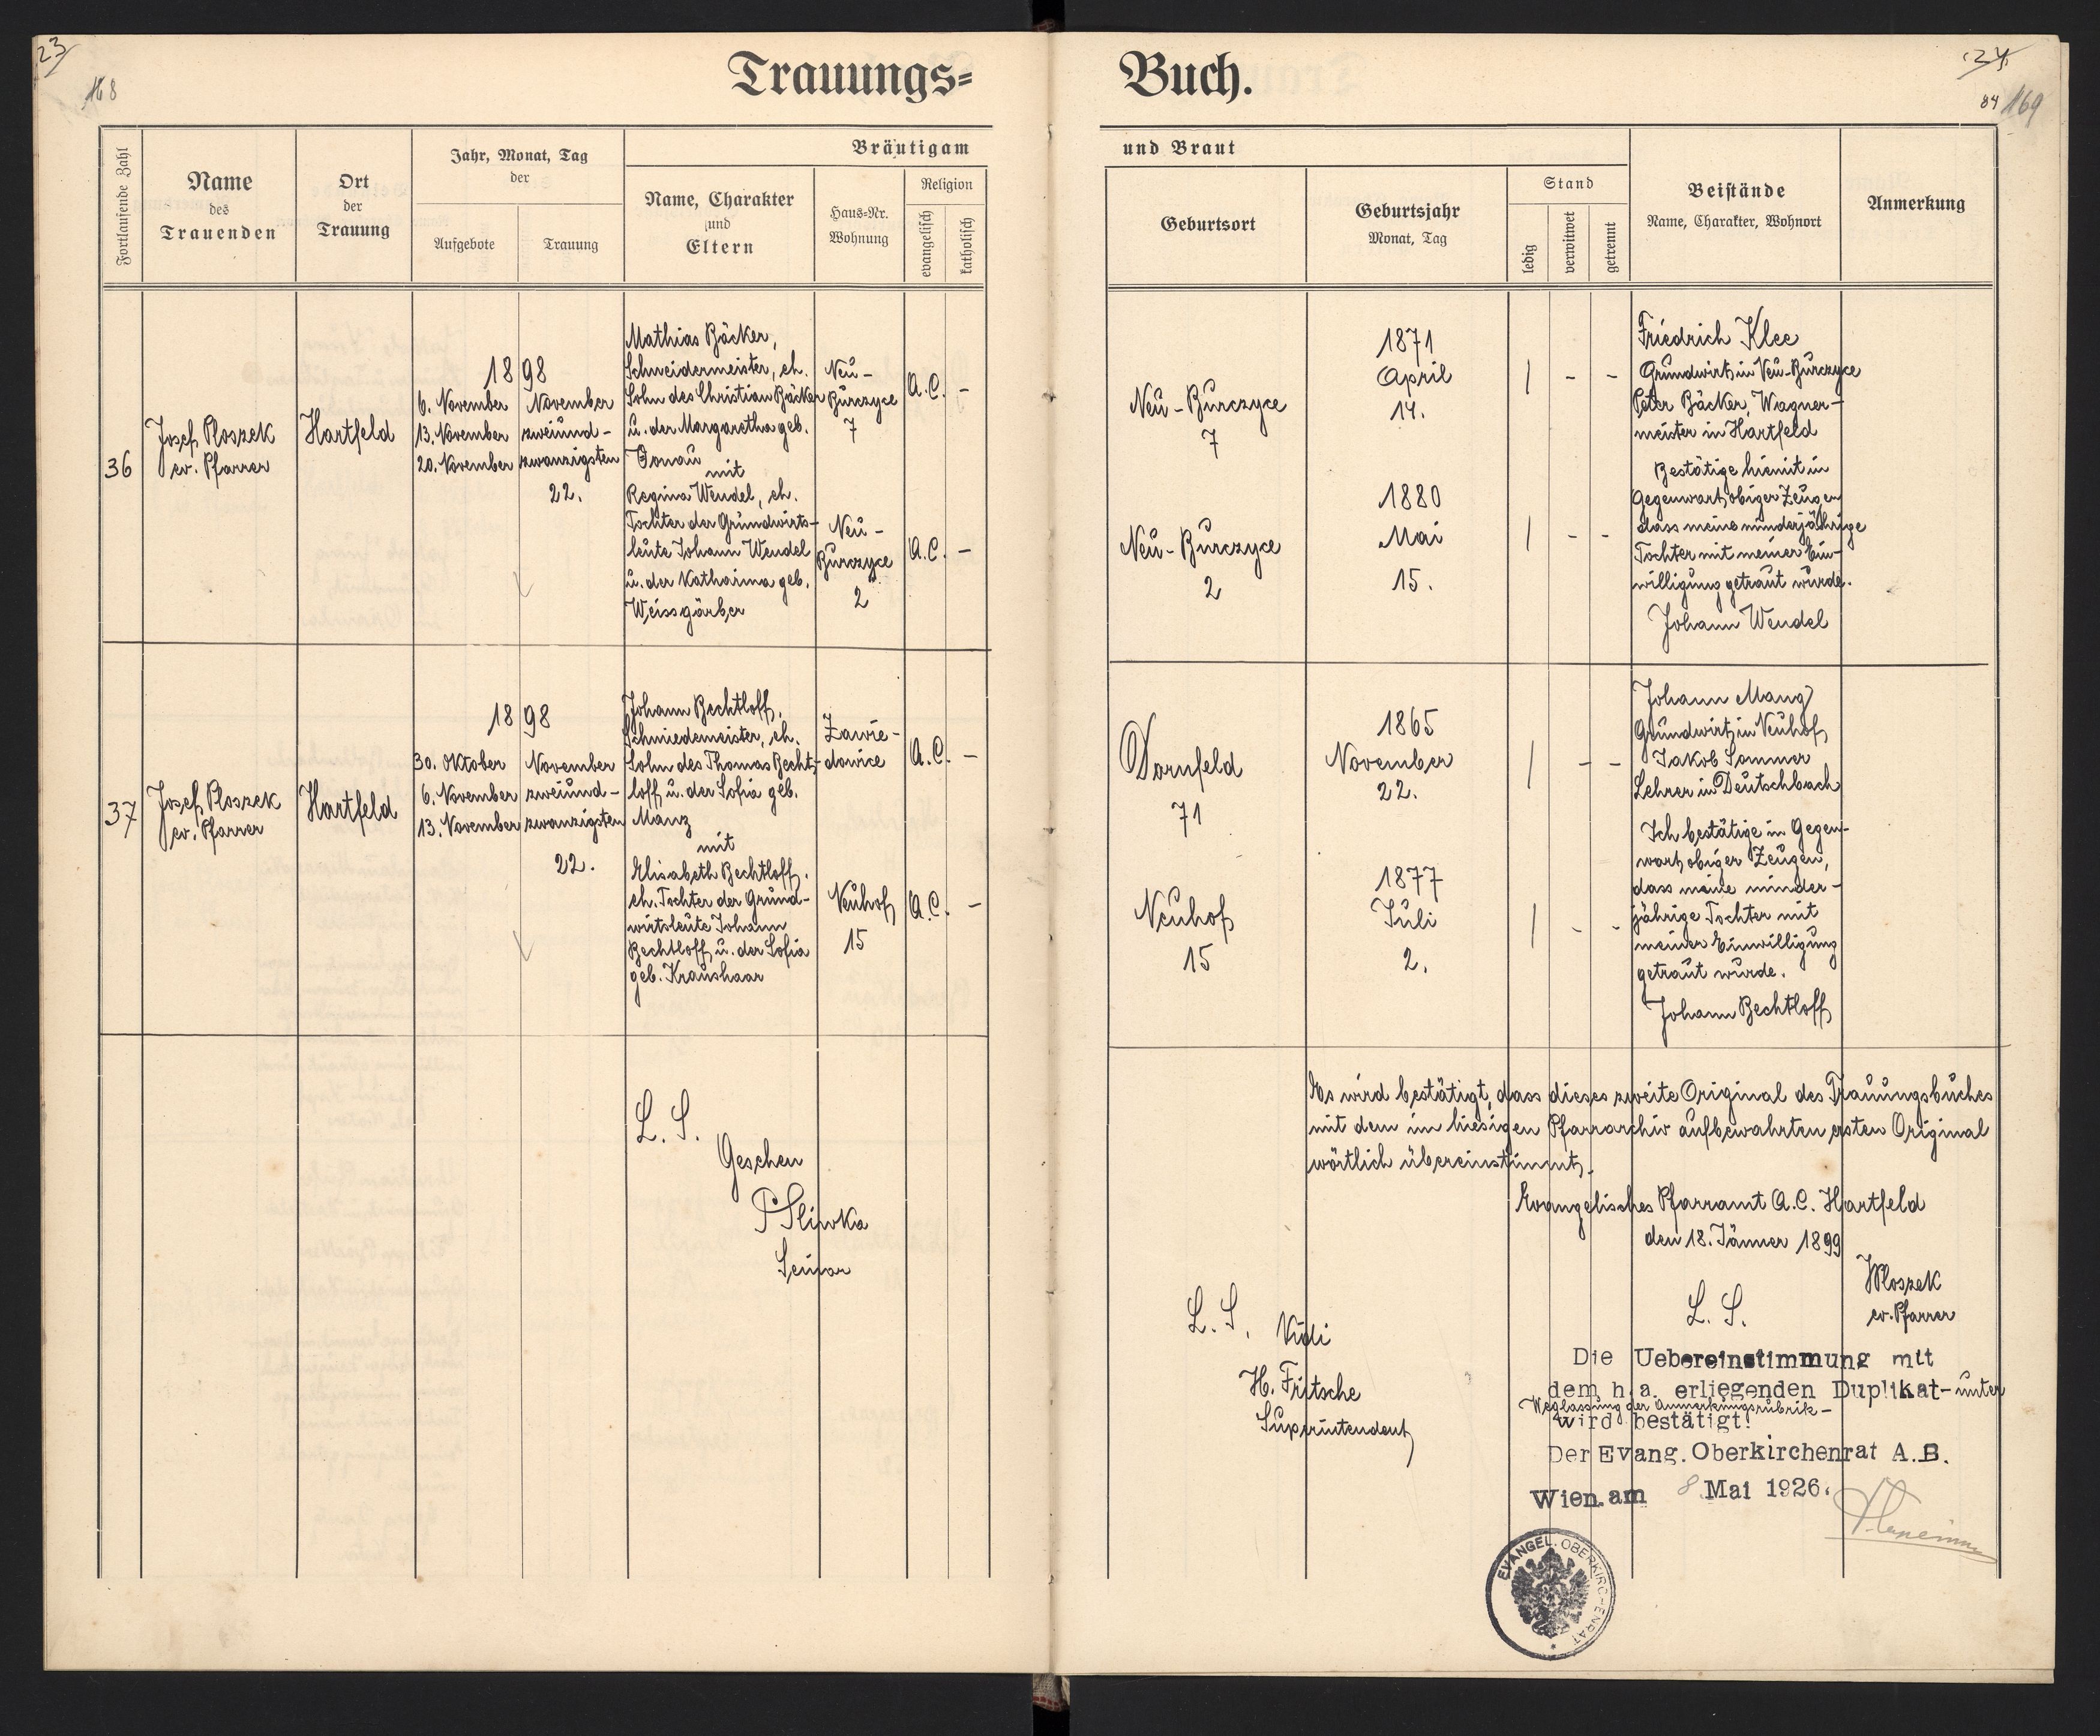 23
168
Trauungs=
Fortlaufende Zahl
Name
des
Trauenden
Ort
der
Trauung
Jahr, Monat, Tag
der
Aufgebote
Trauung
Bräutigam
Name, Charakter
und
Eltern
Haus=Nr.
Wohnung
Religion
evangelisch
katholisch
36
Josef Ploszek
ev. Pfarrer
Hartfeld
1898
6. November
13. November
20. November
November
zweiund-
zwanzigsten
22.
Mathias Bäcker,
Schneidermeister, eh.
Sohn des Christian Bäcker
u. der Margaretha geb.
Donau
mit
Regina Wendel, eh.
Tochter der Grundwirts-
leute Johann Wendel
u. der Katharina geb.
Weissgärber
Neu-
Burczyce
7
A.C. -
Neu-
Burczyce
2
A.C. -
37
Josef Ploszek
ev. Pfarrer
Hartfeld
1898
30. Oktober
6. November
13. November
November
zweiund-
zwanzigsten
22.
Johann Bechtloff,
Schmiedemeister, eh.
Sohn des Thomas Becht-
loff u. der Sofia geb.
Manz
mit
Elisabeth Bechtloff,
eh. Tochter der Grund-
wirtsleute Johann
Bechtloff u. der Sofia
geb. Kraushaar
Zawie-
dowice
A.C. -
Neuhof
15
A.C. -
L. S.
Gesehen
P Sliwka
Senior
Buch.
24
84 169
und Braut
Geburtsort
Geburtsjahr
Monat, Tag
Stand
ledig
verwitwet
getrennt
Beistände
Name, Charakter, Wohnort
Anmerkung
Neu-Burczyce
7
1871
April
14.
| - -
Neu-Burczyce
2
1880
Mai
15.
| - -
Friedrich Klee
Grundwirt in Neu-Burczyce
Peter Bäcker, Wagner-
meister in Hartfeld
Bestätige hiemit in
Gegenwart obiger Zeugen
dass meine minderjährige
Tochter mit meiner Ein-
willigung getraut wurde.
Johann Wendel
Dornfeld
71
1865
November
22.
| - -
Neuhof
15
1877
Juli
2.
| - -
Johann Mang
Grundwirt in Neuhof
Jakob Sommer
Lehrer in Deutschbach
Ich bestätige in Gegen-
wart obiger Zeugen,
dass meine minder-
jährige Tochter mit
meiner Einwilligung
getraut wurde.
Johann Bechtloff
Es wird bestätigt, dass dieses zweite Original des Trauungsbuches
mit dem im hiesigen Pfarrarchiv aufbewahrten ersten Original
wörtlich übereinstimmt.
Evangelisches Pfarramt A.C. Hartfeld
den 18. Jänner 1899
JPloszek
ev. Pfarrer
L. S.
L. S.
Vidi
H. Fritsche
Superintendent
Die Uebereinstimmung mit
dem h.a. erliegenden Duplikat-unter
Weglassung der Anmerkungsrubrik-
wird bestätigt!
Der Evang. Oberkirchenrat A.B.
Wien am 8 Mai 1926.
EVANGEL. OBERKIRCHENRAT